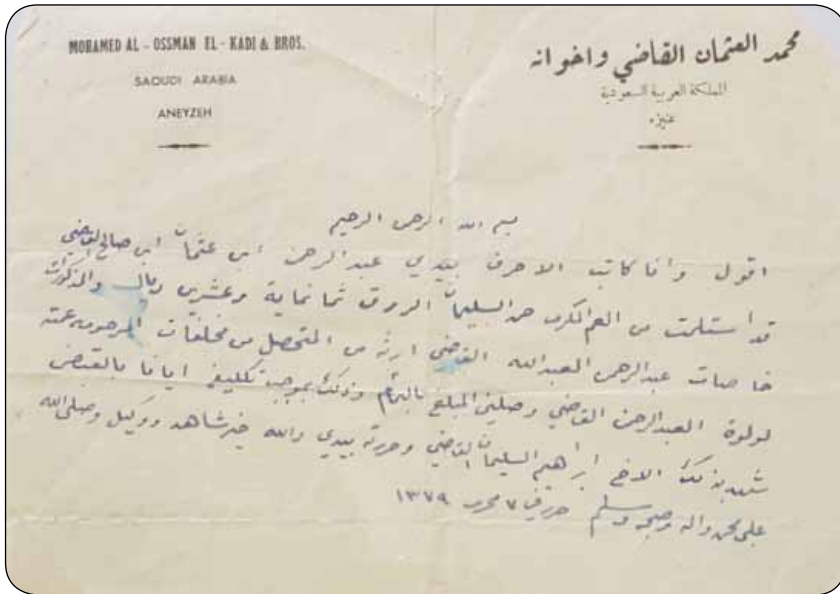 MOHAMED AL - OSSMAN EL - KADI & BROS.
SAOUDI ARABIA
ANEYZEH
محمد العثمان القاضي واخوانه
المملكة العربية السعودية
عنيزه
بسم الله الرحمن الرحيم
اقول وانا كاتب الاحرف بيدي عبد الرحمن ابن عثمان ابن صالح القاضي
قد استلمت من العم المكرم حمد السليمان ثمانماية وعشرين ريال والمذكورات
خاصات عبد الرحمن العبدالله القاضي ارثه من المتحصل من مخلفات المرحومه عمته
لولوة العبد الرحمن القاضي وصلني المبلغ بالتمام وذلك بموجب تكليف ايانا بالقبض
شهد بذلك الاخ ابراهيم السليمان القاضي وحررته بيدي والله خير شاهد ووكيل وصلى الله
على محمد واله وصحبه وسلم حرر في ٧ محرم ١٣٧٩